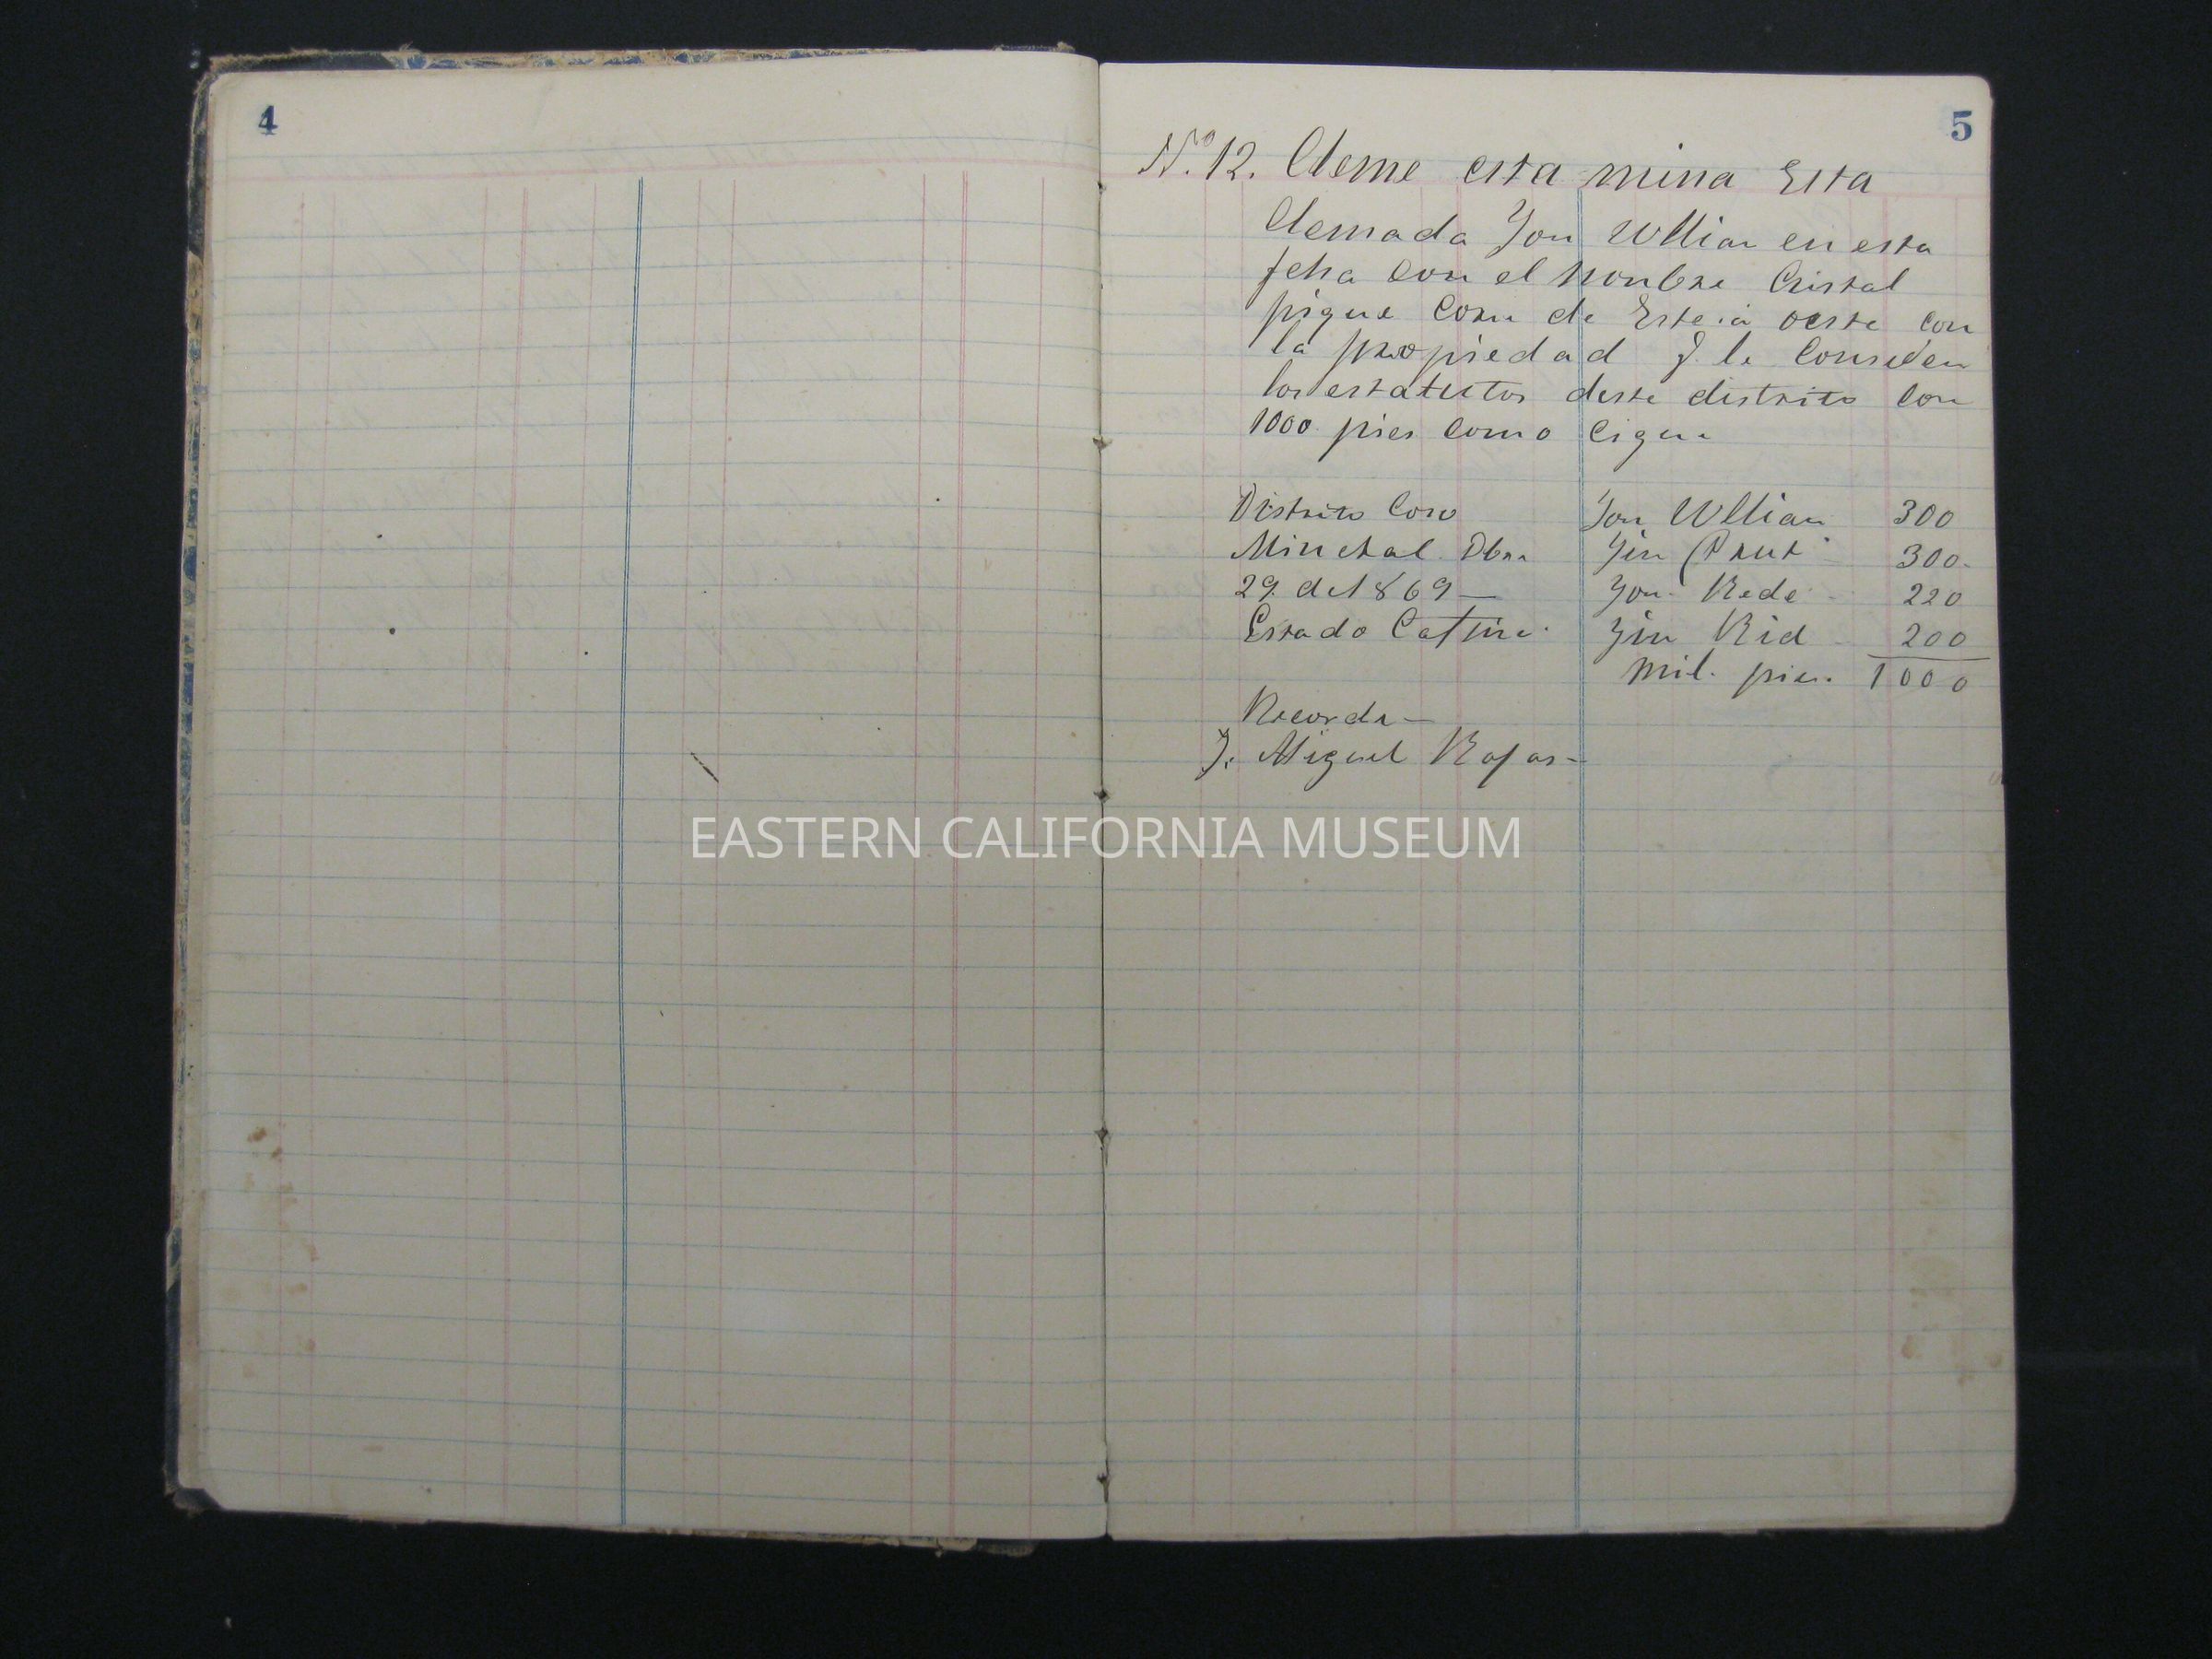 4
5
Nº 12. Cleme esta mina Esta
Clemada Yon Wllian en esta
feha Con el Nonbre Cristal
pigue Core de Este á oeste con
la propiedad q. le Conseden
los estatutos deste distrito Con
1000 pies Como Cigue
Distrito Coso Yon Wllian 300
Mineral Dbre Yin 300
29. de 1869— Yon Rede 220
Estado Yin Rid 200
Mil. pies 1000
Recorde—
J. Miguel Rojas—
EASTERN CALIFORNIA MUSEUM